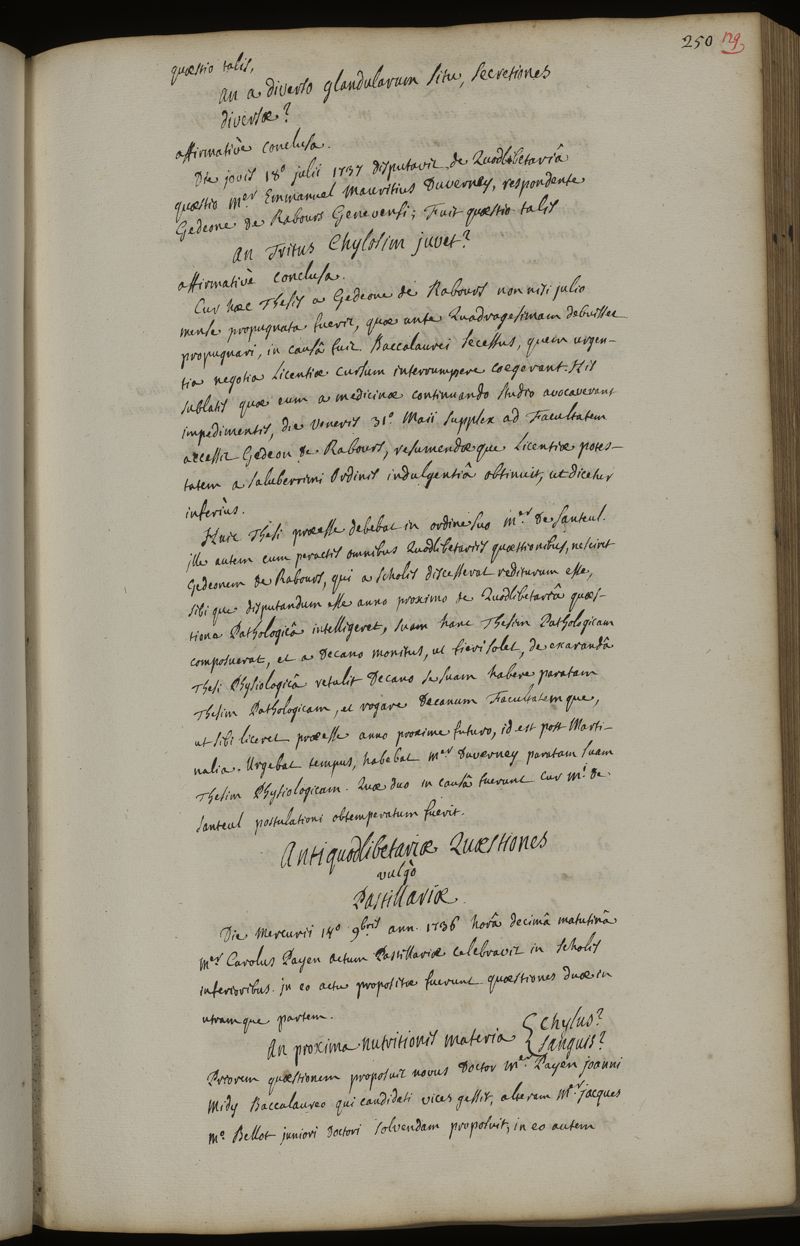 250 129
quæstio talis,
An a diverso glandularum situ, secretiones
diversæ?
affirmativè conclusa.
Die jovis 18° julii 1737 disputavit de Quodlibetariâ
quæstio Mer Emmanuel Mauritius Duverney, respondente
Gedeone de Rabours Genevensi; Fuit quæstio talis
An Tritus Chylosim juvet?
affirmativè conclusa.
Cur hæc Thesis a Gedeone de Rabours non nisi julio
mense propugnata fuerit, quæ ante Quadragesimam debuisset
propugnari, in causâ fuit Baccalaurei secessus, quem urgen-
tia negotia Licentiæ cursum interrumpere coegerant. His
sublatis quæ eum a medicinæ continuando studio avocaverant
impedimentis, die veneris 31° Maii supplex ad Facultatem
accessit Gedeon de Rabours, resumendæque Licentiæ potes-
tatem a saluberrimi Ordinis indulgentiâ obtinuit, ut dicetur
inferiùs.
Huic Thesi præesse debebat in ordine suo Mer de Santeul.
ille autem cum peractis omnibus Quodlibetariis quæstionibus, nesciret
Gedeonem de Rabours, qui a scholis discesserat rediturum esse,
sibi que disputandum esse anno proximo de Quodlibetariâ quæs-
tione Pathologicâ intelligeret, suam hanc Thesim Pathologicam
composuerat, et a Decano monitus, ut fieri solet, de exarandâ
Thesi Physiologicâ retulit Decano se suam habere paratam
Thesim Pathologicam, et rogare Decanum Facultatemque,
ut sibi liceret præesse anno proxime futuro, id est post Marti-
nalia. Urgebat tempus, habebat Mer Duverney paratam suam
Thesim Physiologicam. Quæ duo in causâ fuerunt cur Mi de
Santeul postulationi obtemperatum fuerit.
Antiquodlibetariæ Quæstiones
vulgò
Pastillariæ.
Die Mercurii 14° 9bris ann. 1736 horâ decimâ matutinâ
Mer Carolus Payen actum Pastillariæ celebravit in scholis
inferioribus. jn eo actu propositæ fuerunt quæstiones duæ in
utramque partem.
An proxima nutritionis materia { Chylus?
Sanguis?
Priorem quæstionem proposuit novus Doctor Mer Payen joanni
Midy Baccalaureo qui candidati vices gessit, alteram Mer jacques
Mo Bellot juniori doctori solvendam proposuit; in eo autem